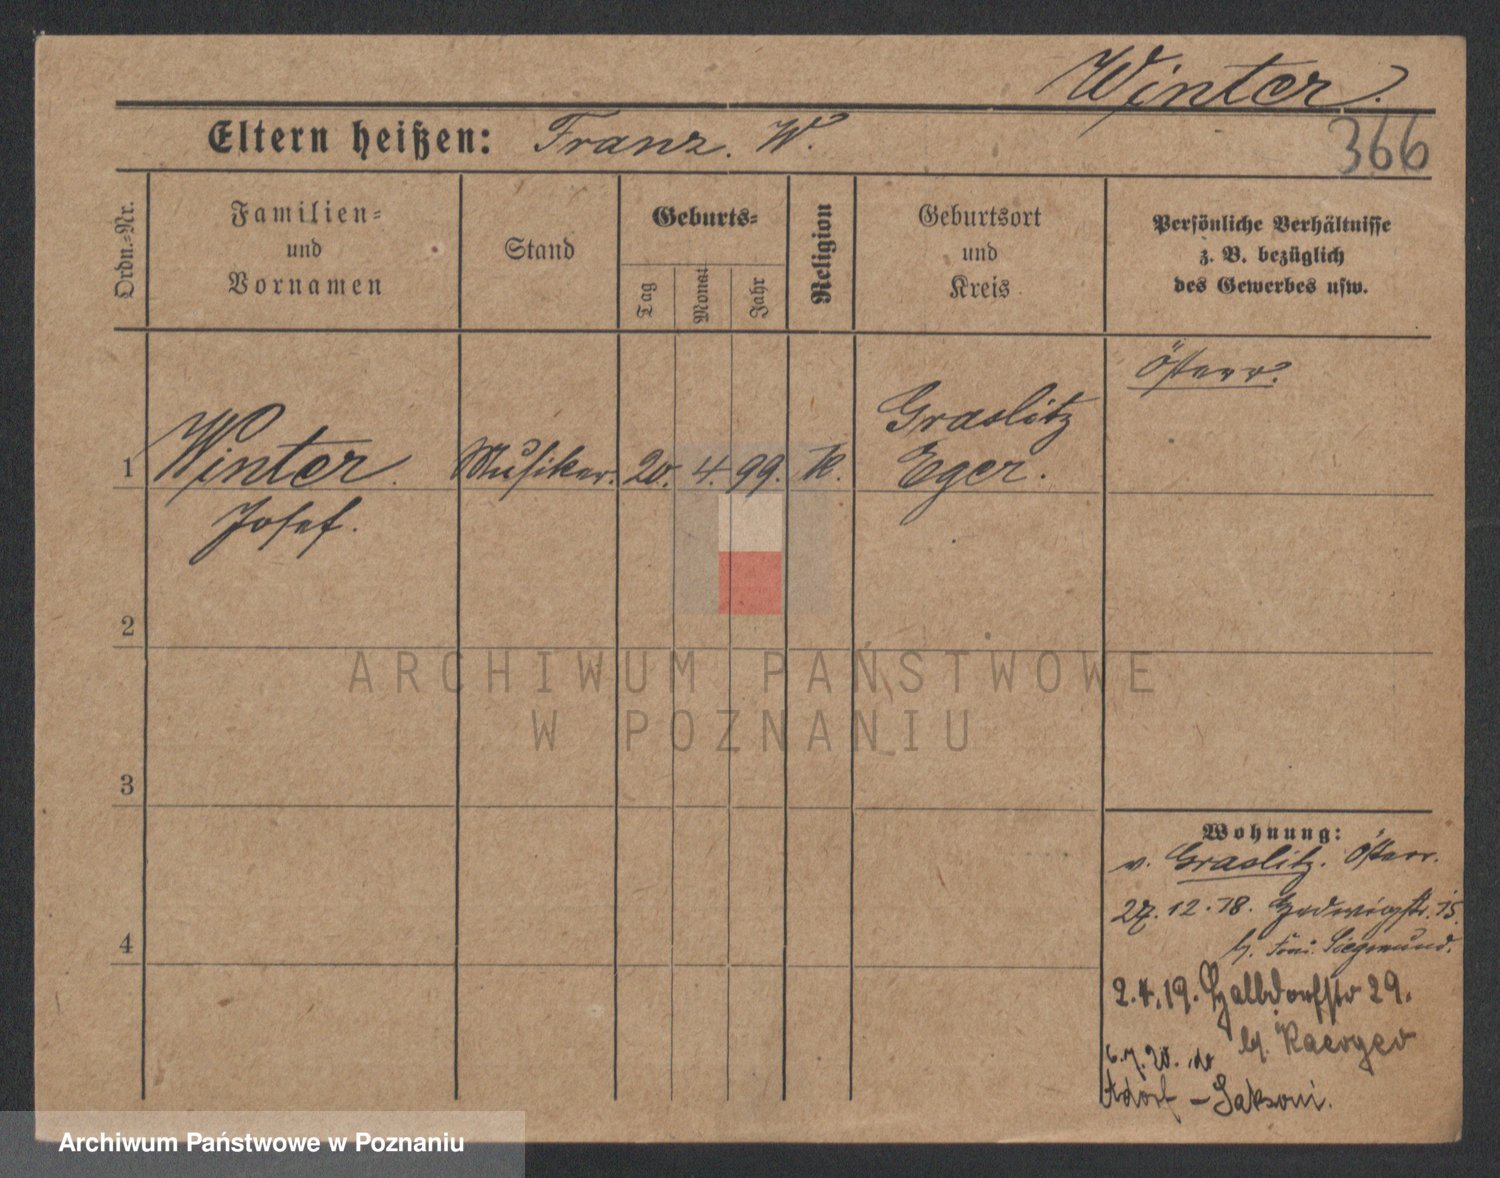 Winter.
Eltern heißen: Franz. W.
366
Ordn.-Nr.
Familien-
und
Vornamen
Stand
Geburts-
Tag
Monat
Jahr
Religion
Geburtsort
und
Kreis
Persönliche Verhältnisse
z. B. bezüglich
des Gewerbes usw.
Österr.
1 Winter. Musiker. 20. 4. 99. k. Graslitz
Eger.
Josef.
2
ARCHIWUM PAŃSTWOWE
W POZNANIU
3
Wohnung:
v. Graslitz. Österr.
4
27.12.18. Hedwigstr. 15.
b. Siegmund.
2.4.19. Halbdorfstr 29.
b.
20. do
Adorf – Saksoni.
Archiwum Państwowe w Poznaniu